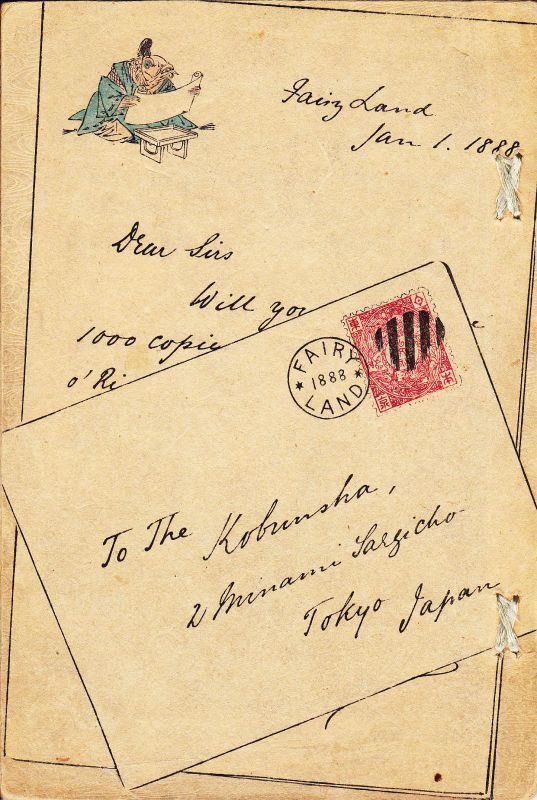 Fairy Land
Jan 1. 1888
Dear Sirs
Will you
1000 copie
o' Ri
FAIRY
1888
LAND
To The Kobunsha,
2 Minami Saegicho
Tokyo Japan